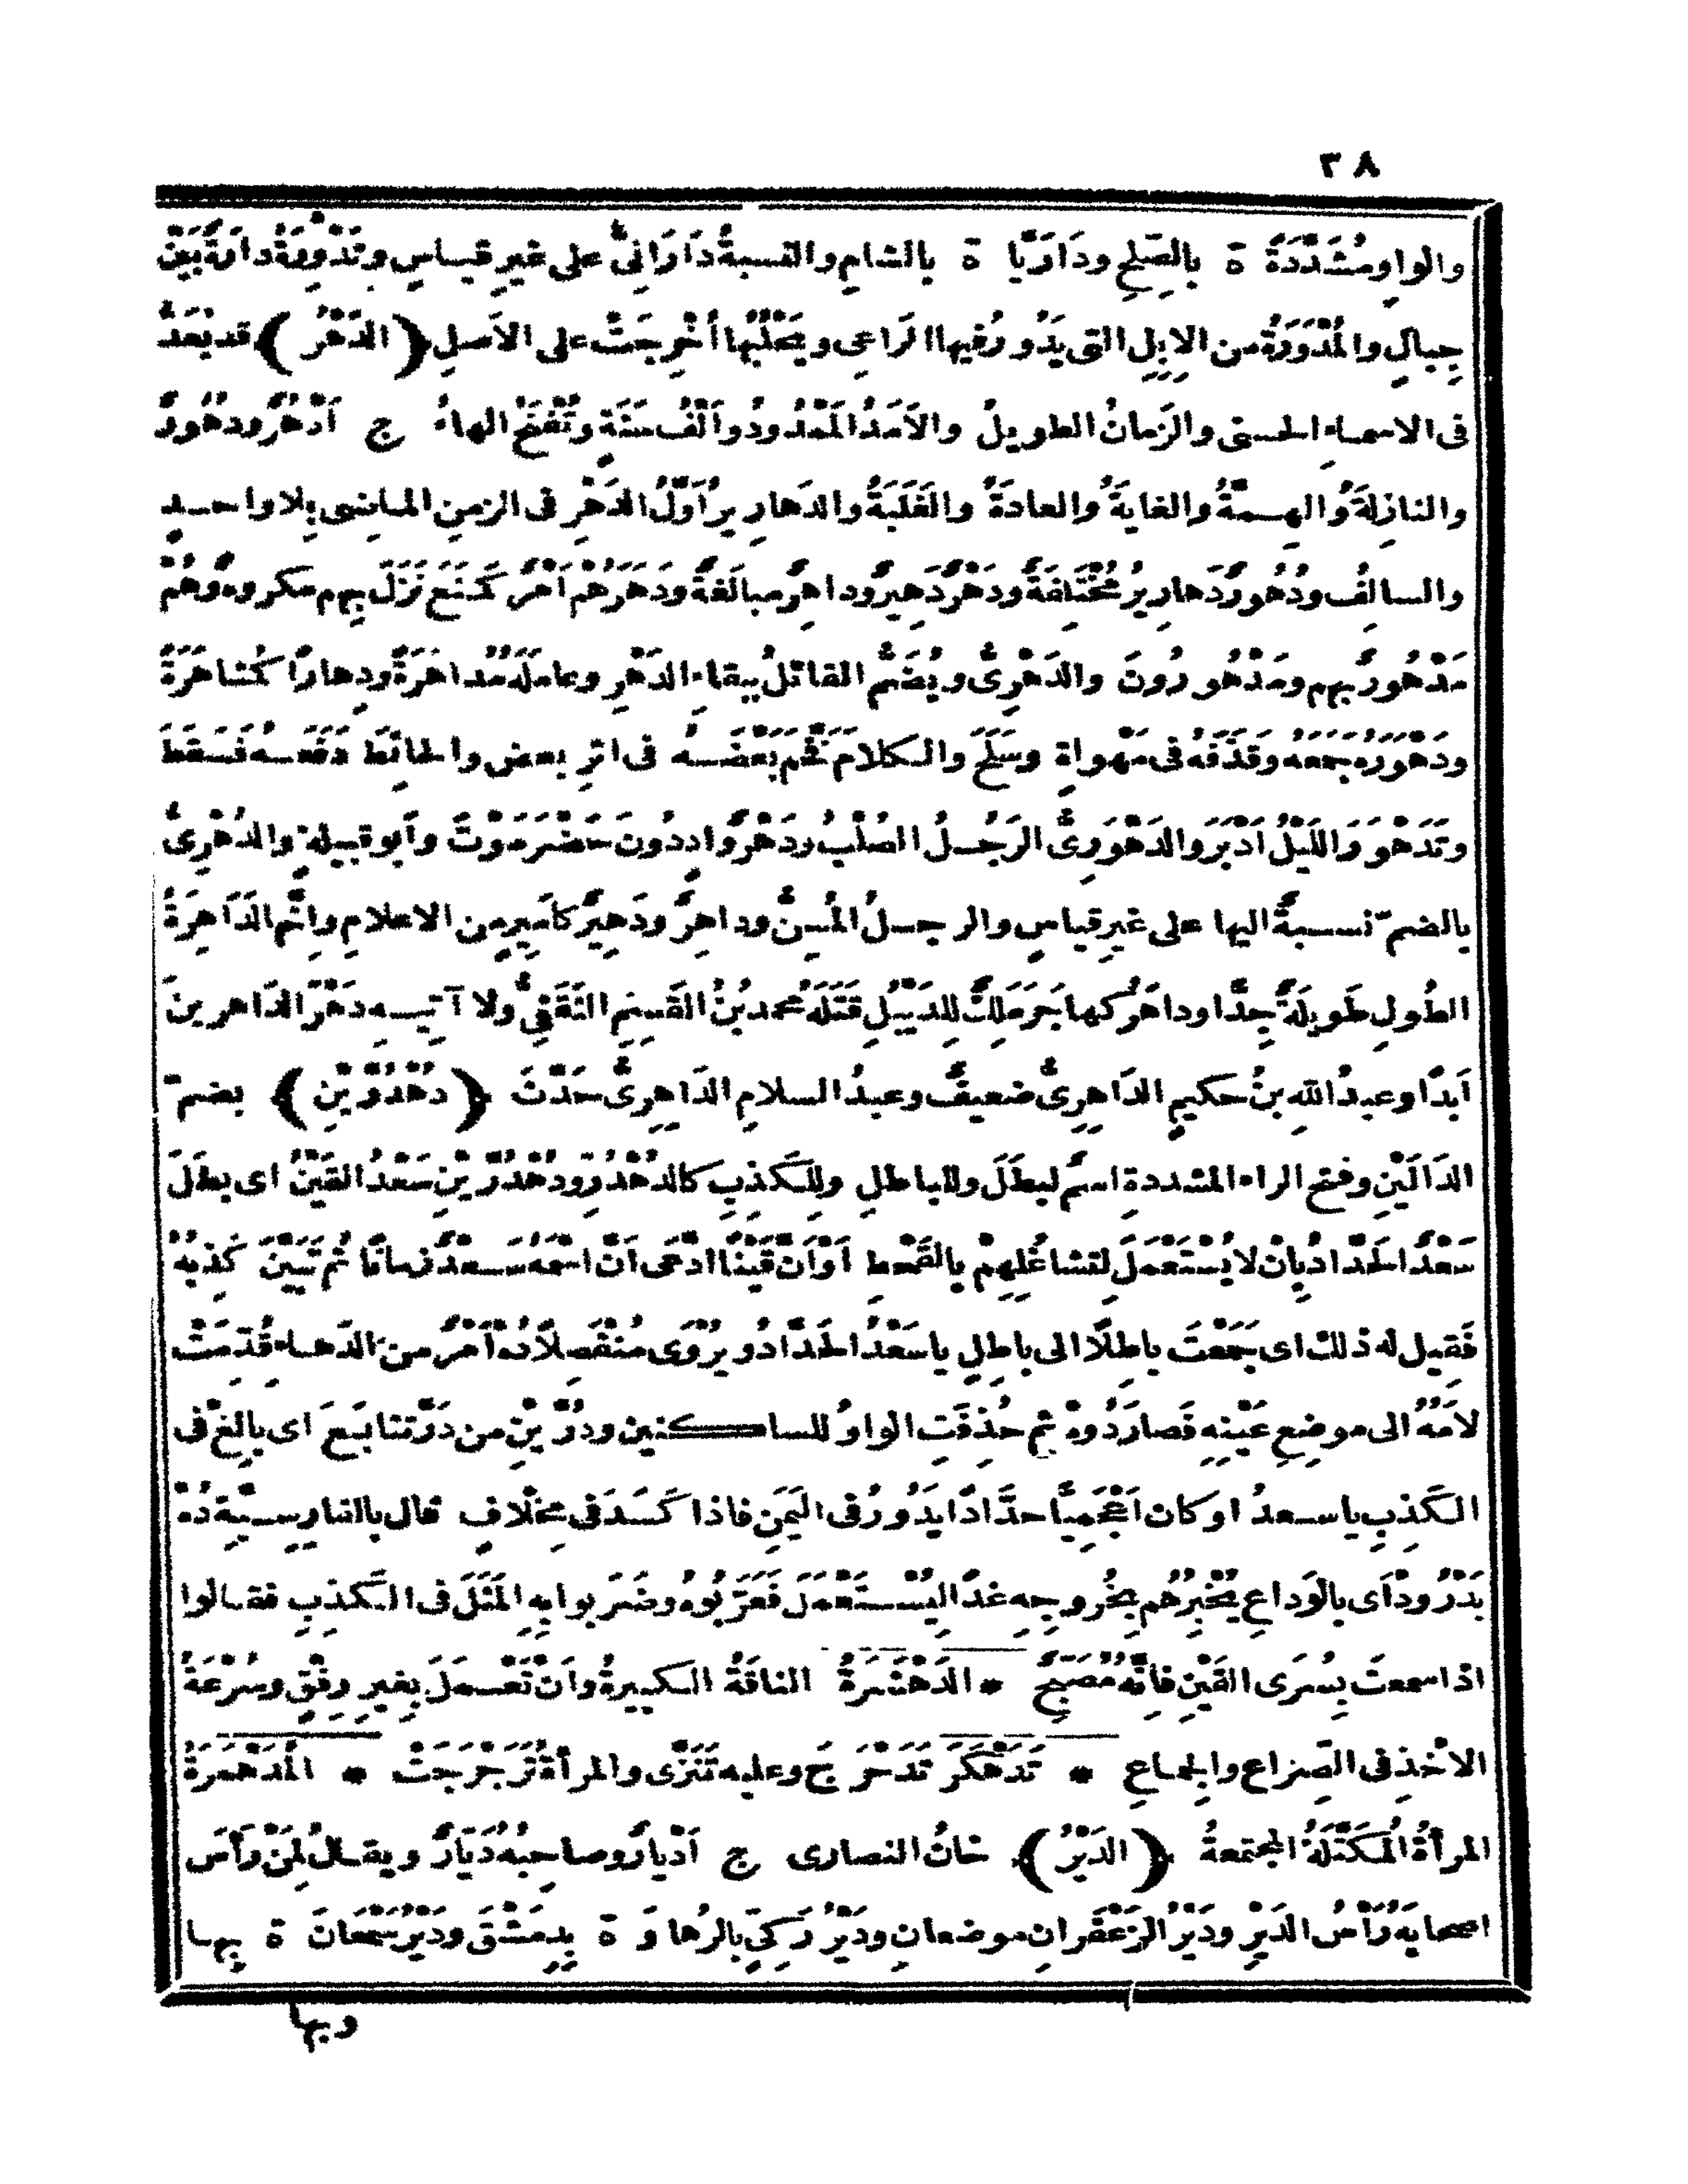 ٣٨
والواوِ مُشَدَّدَةً ة بالصِّلحِ ودَارَيَّا ة بالشامِ والنسبةُ دَارَانِىٌّ على غيرِ قياسٍ وتَدْوِرَةُ دارَةٌ بَيْنَ
جِبالٍ والمُدْوَرَةُ من الاِبِلِ التى يَدُورُ فيها الرَاعِى ويَحْلُبُها أُخْرِجَتْ على الاَصلِ ﴿ الدَهْرُ ﴾ قد يُعَدُّ
فى الاسماءِ الحسنى والزَمانُ الطويلُ والاَمَدُ المَمْدُودُ واَلْفُ سَنَةٍ وتُفْتَحُ الهاءُ ج اَدْهُرٌ ودُهُورٌ
والنازِلَةُ والهِمَّةُ والغايَةُ والعادَةُ والغَلَبَةُ والدَهارِيرُ اَوَّلُ الدَهْرِ فى الزمنِ الماضِى بِلا واحدٍ
والسالِفُ ودُهُورٌ دَهارِيرُ مُخْتَلِفَةٌ ودَهْرٌ دَهِيرٌ وداهِرٌ مبالَغَةٌ ودَهَرَهُمْ اَمْرٌ كَمَنَعَ نَزَلَ بِهِم مكروهٌ وهُمْ
مَدْهُورٌ بهِم ومَدْهُورُونَ والدَهْرِىُّ ويُضَمُّ القائلُ بِبقاءِ الدَهْرِ وعامَلَهُ مُداهَرَةً ودِهارًا كمُشاهَرَةً
ودَهْوَرَهُ جَمَعَهُ وقَذَفَهُ فى مَهْواةٍ وسَلَحَ والكلامَ فَخَّمَ بَعْضَهُ فى اثرِ بعضٍ والحائِطَ دَفَعَهُ فَسَقَطَ
وتَدَهْوَرَ اللَيْلُ اَدْبَرَ والدَهْوَرِىُّ الرَجُلُ الصُلْبُ ودَهْرٌ وادٍ دُونَ حَضْرَمَوْتَ وابو قبيلةٍ والدُهْرِىُّ
بالضمّ نسبةٌ اليها على غيرِ قياسٍ والرجلُ المُسِنُّ وداهِرٌ ودَهِيرٌ كاَمِيرٍ من الاعلامِ وانَّهم الدَاهِرَةُ
الطُولِ طَويلَةٌ جِدًّا وداهَرُ كهاجَرَ مَلِكٌ لِلدَيْبُلِ قَتَلَهُ محمد بنُ القَسِمِ الثَقَفِىُّ ولا آتيهِ دَهْرَ الدَاهِرِينَ
اَبَدًا وعبدُ اللهِ بنُ حكيمٍ الدَاهِرِىُّ ضعيفٌ وعبدُ السلامِ الدَاهِرِىُّ حَدَّثَ ﴿ دُهْدُرَّيْنِ ﴾ بضمّ
الدَالَيْنِ وفتحِ الراءِ المشددةِ اسمٌ لِبَطَلَ وللباطلِ ولِلكَذِبِ كالدُهْدُرِّ ودُهْدُرَّيْنِ سَعْدُ القَيْنُ اى بطَلَ
سَعْدٌ الحَدَّادُ بِاَنْ لا يُسْتَعْمَلَ لِتَشاغُلِهِمْ بالقَحْطِ اَوْ اَنَّ قَيْنًا ادَّعَى اَنَّ اسْمَهُ سَعْدٌ زمانًا ثُم تَبَيَّنَ كَذِبُهُ
فَقيل له ذلك اى جَمَعْتَ باطِلًا الى باطِلٍ يا سَعْدُ الحَدَّادُ ويُرْوَى مُنْفَصِلًا دُهْ اَمْرٌ من الدَهاءِ قُدِّمَتْ
لامُهُ الى موضِعِ عَيْنِهِ فَصارَ دُوهْ ثم حُذِفَتِ الواوُ للساكنين ودُرَّيْنِ من دَرَّ تتابَعَ اى بالِغْ فى
الكَذِبِ يا سعدُ او كان اَعْجَمِيًّا حدَّادًا يَدُورُ فى اليَمَنِ فاذا كَسَدَ فى مِخْلافٍ قال بالفارِسِيَّةِ دُهْ
بَدْرُودْ اَى بالوَداعِ يُخْبِرُهُم بِخُروجِهِ غدًا لِيُسْتَعْمَلَ فَعَرَّبُوهُ وضَرَبوا بِهِ المَثَلَ فى الكَذِبِ فقالوا
اذا سمعتَ بِسُرَى القَيْنِ فانَّه مُصَبِّحٌ * الدَهْشَرَةُ الناقَةُ الكبيرةُ واَنْ تَعْمَلَ بِغيرِ رِفْقٍ وسُرْعَةُ
الاَخْذِ فى الصِراعِ والجِماعِ * تَدَهْكَرَ تَدَحْرَجَ وعليه تَنَزَّى والمرأةُ تَرَجْرَجَتْ * المُدَهْمَرَةُ
المرأةُ المُكَتَّلَةُ المجتمعةُ ﴿ الدَيْرُ ﴾ خانُ النصارى ج اَدْيارٌ وصاحِبُهُ دَيَّارٌ ويقالُ لِمَنْ رَأَسَ
اصحابَهُ رَأْسُ الدَيْرِ ودَيْرُ الزَعْفَرانِ موضعانِ ودَيْرُ زَكِّىَ بالرُها وَ ة بِدِمَشْقَ ودَيْرُ سَمْعَانَ ة بِها
وبها